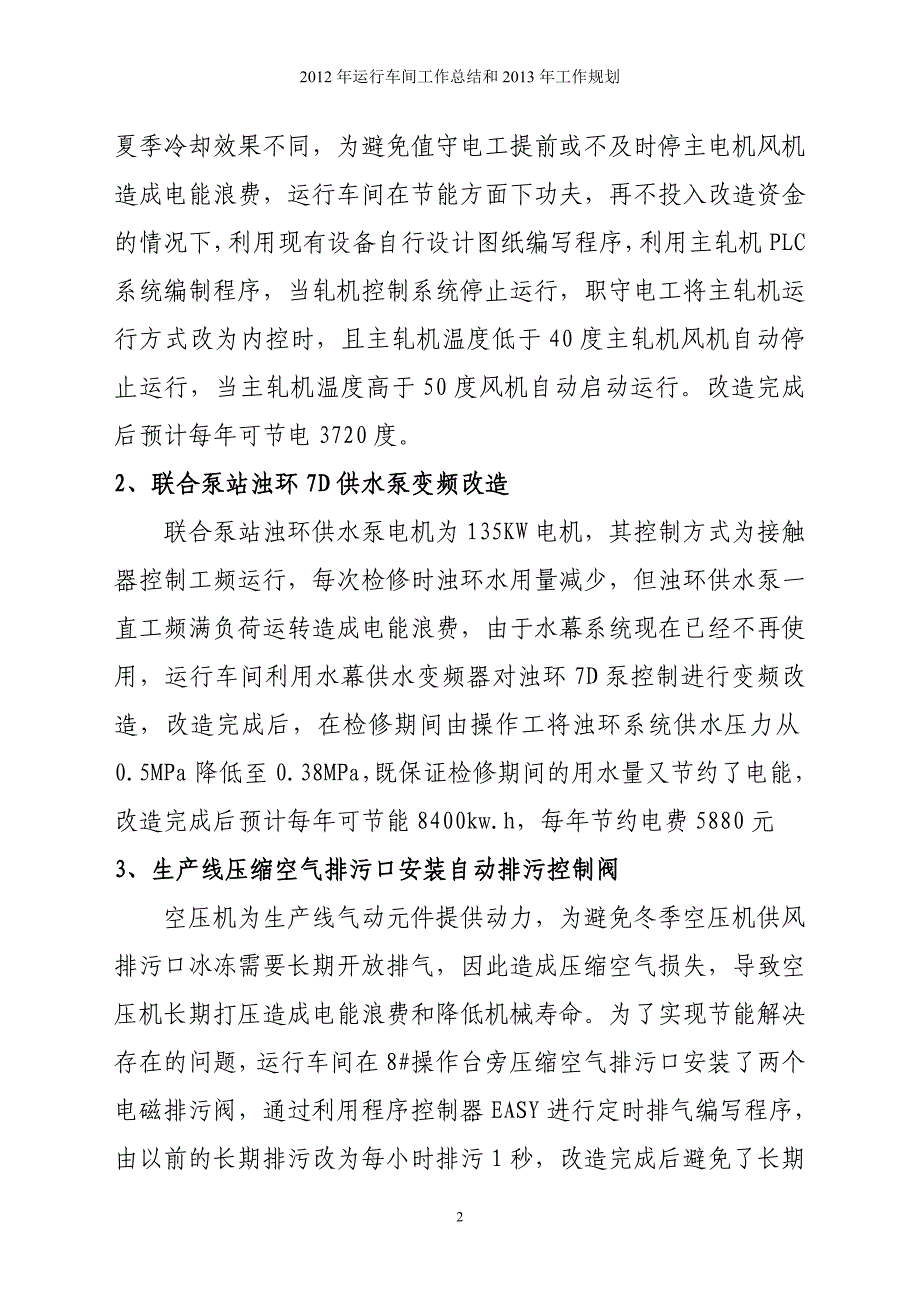 2012 年运行车间工作总结和 2013 年工作规划
夏季冷却效果不同，为避免值守电工提前或不及时停主电机风机
造成电能浪费，运行车间在节能方面下功夫，再不投入改造资金
的情况下，利用现有设备自行设计图纸编写程序，利用主轧机 PLC
系统编制程序，当轧机控制系统停止运行，职守电工将主轧机运
行方式改为内控时，且主轧机温度低于 40 度主轧机风机自动停
止运行，当主轧机温度高于 50 度风机自动启动运行。改造完成
后预计每年可节电 3720 度。
2、联合泵站浊环 7D 供水泵变频改造
联合泵站浊环供水泵电机为 135KW 电机，其控制方式为接触
器控制工频运行，每次检修时浊环水用量减少，但浊环供水泵一
直工频满负荷运转造成电能浪费，由于水幕系统现在已经不再使
用，运行车间利用水幕供水变频器对浊环 7D 泵控制进行变频改
造，改造完成后，在检修期间由操作工将浊环系统供水压力从
0.5MPa 降低至 0.38MPa，既保证检修期间的用水量又节约了电能，
改造完成后预计每年可节能 8400kw.h，每年节约电费 5880 元
3、生产线压缩空气排污口安装自动排污控制阀
空压机为生产线气动元件提供动力，为避免冬季空压机供风
排污口冰冻需要长期开放排气，因此造成压缩空气损失，导致空
压机长期打压造成电能浪费和降低机械寿命。为了实现节能解决
存在的问题，运行车间在 8#操作台旁压缩空气排污口安装了两个
电磁排污阀，通过利用程序控制器 EASY 进行定时排气编写程序，
由以前的长期排污改为每小时排污 1 秒，改造完成后避免了长期
2